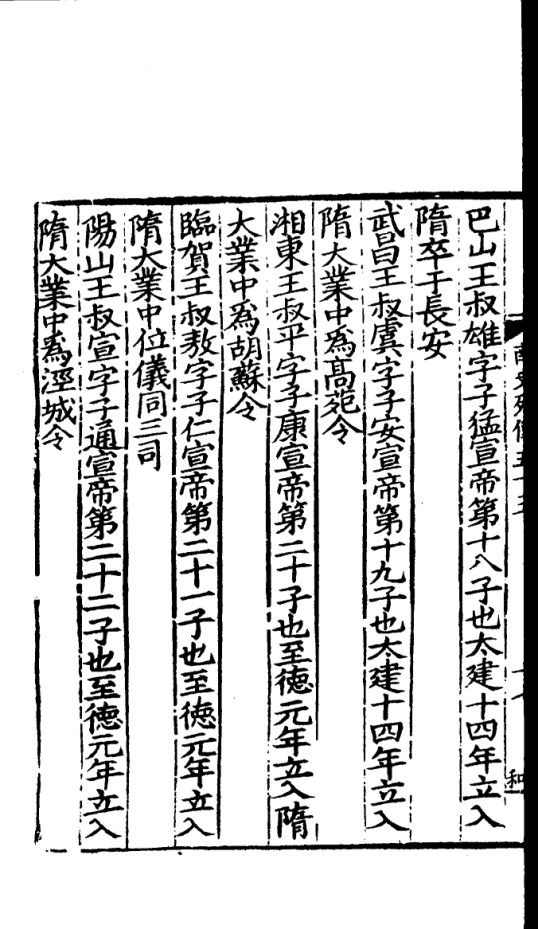 巴山王叔雄字子猛宣帝第十八子也太建十四年立入
隋卒于長安
武昌王叔虞字子安宣帝第十九子也太建十四年立入
隋大業中爲高苑令
湘東王叔平字子康宣帝第二十子也至徳元年立入隋
大業中爲胡蘇令
臨賀王叔敖字子仁宣帝第二十一子也至徳元年立入
隋大業中位儀同三司
陽山王叔宣字子通宣帝第二十二子也至徳元年立入
隋大業中爲涇城令